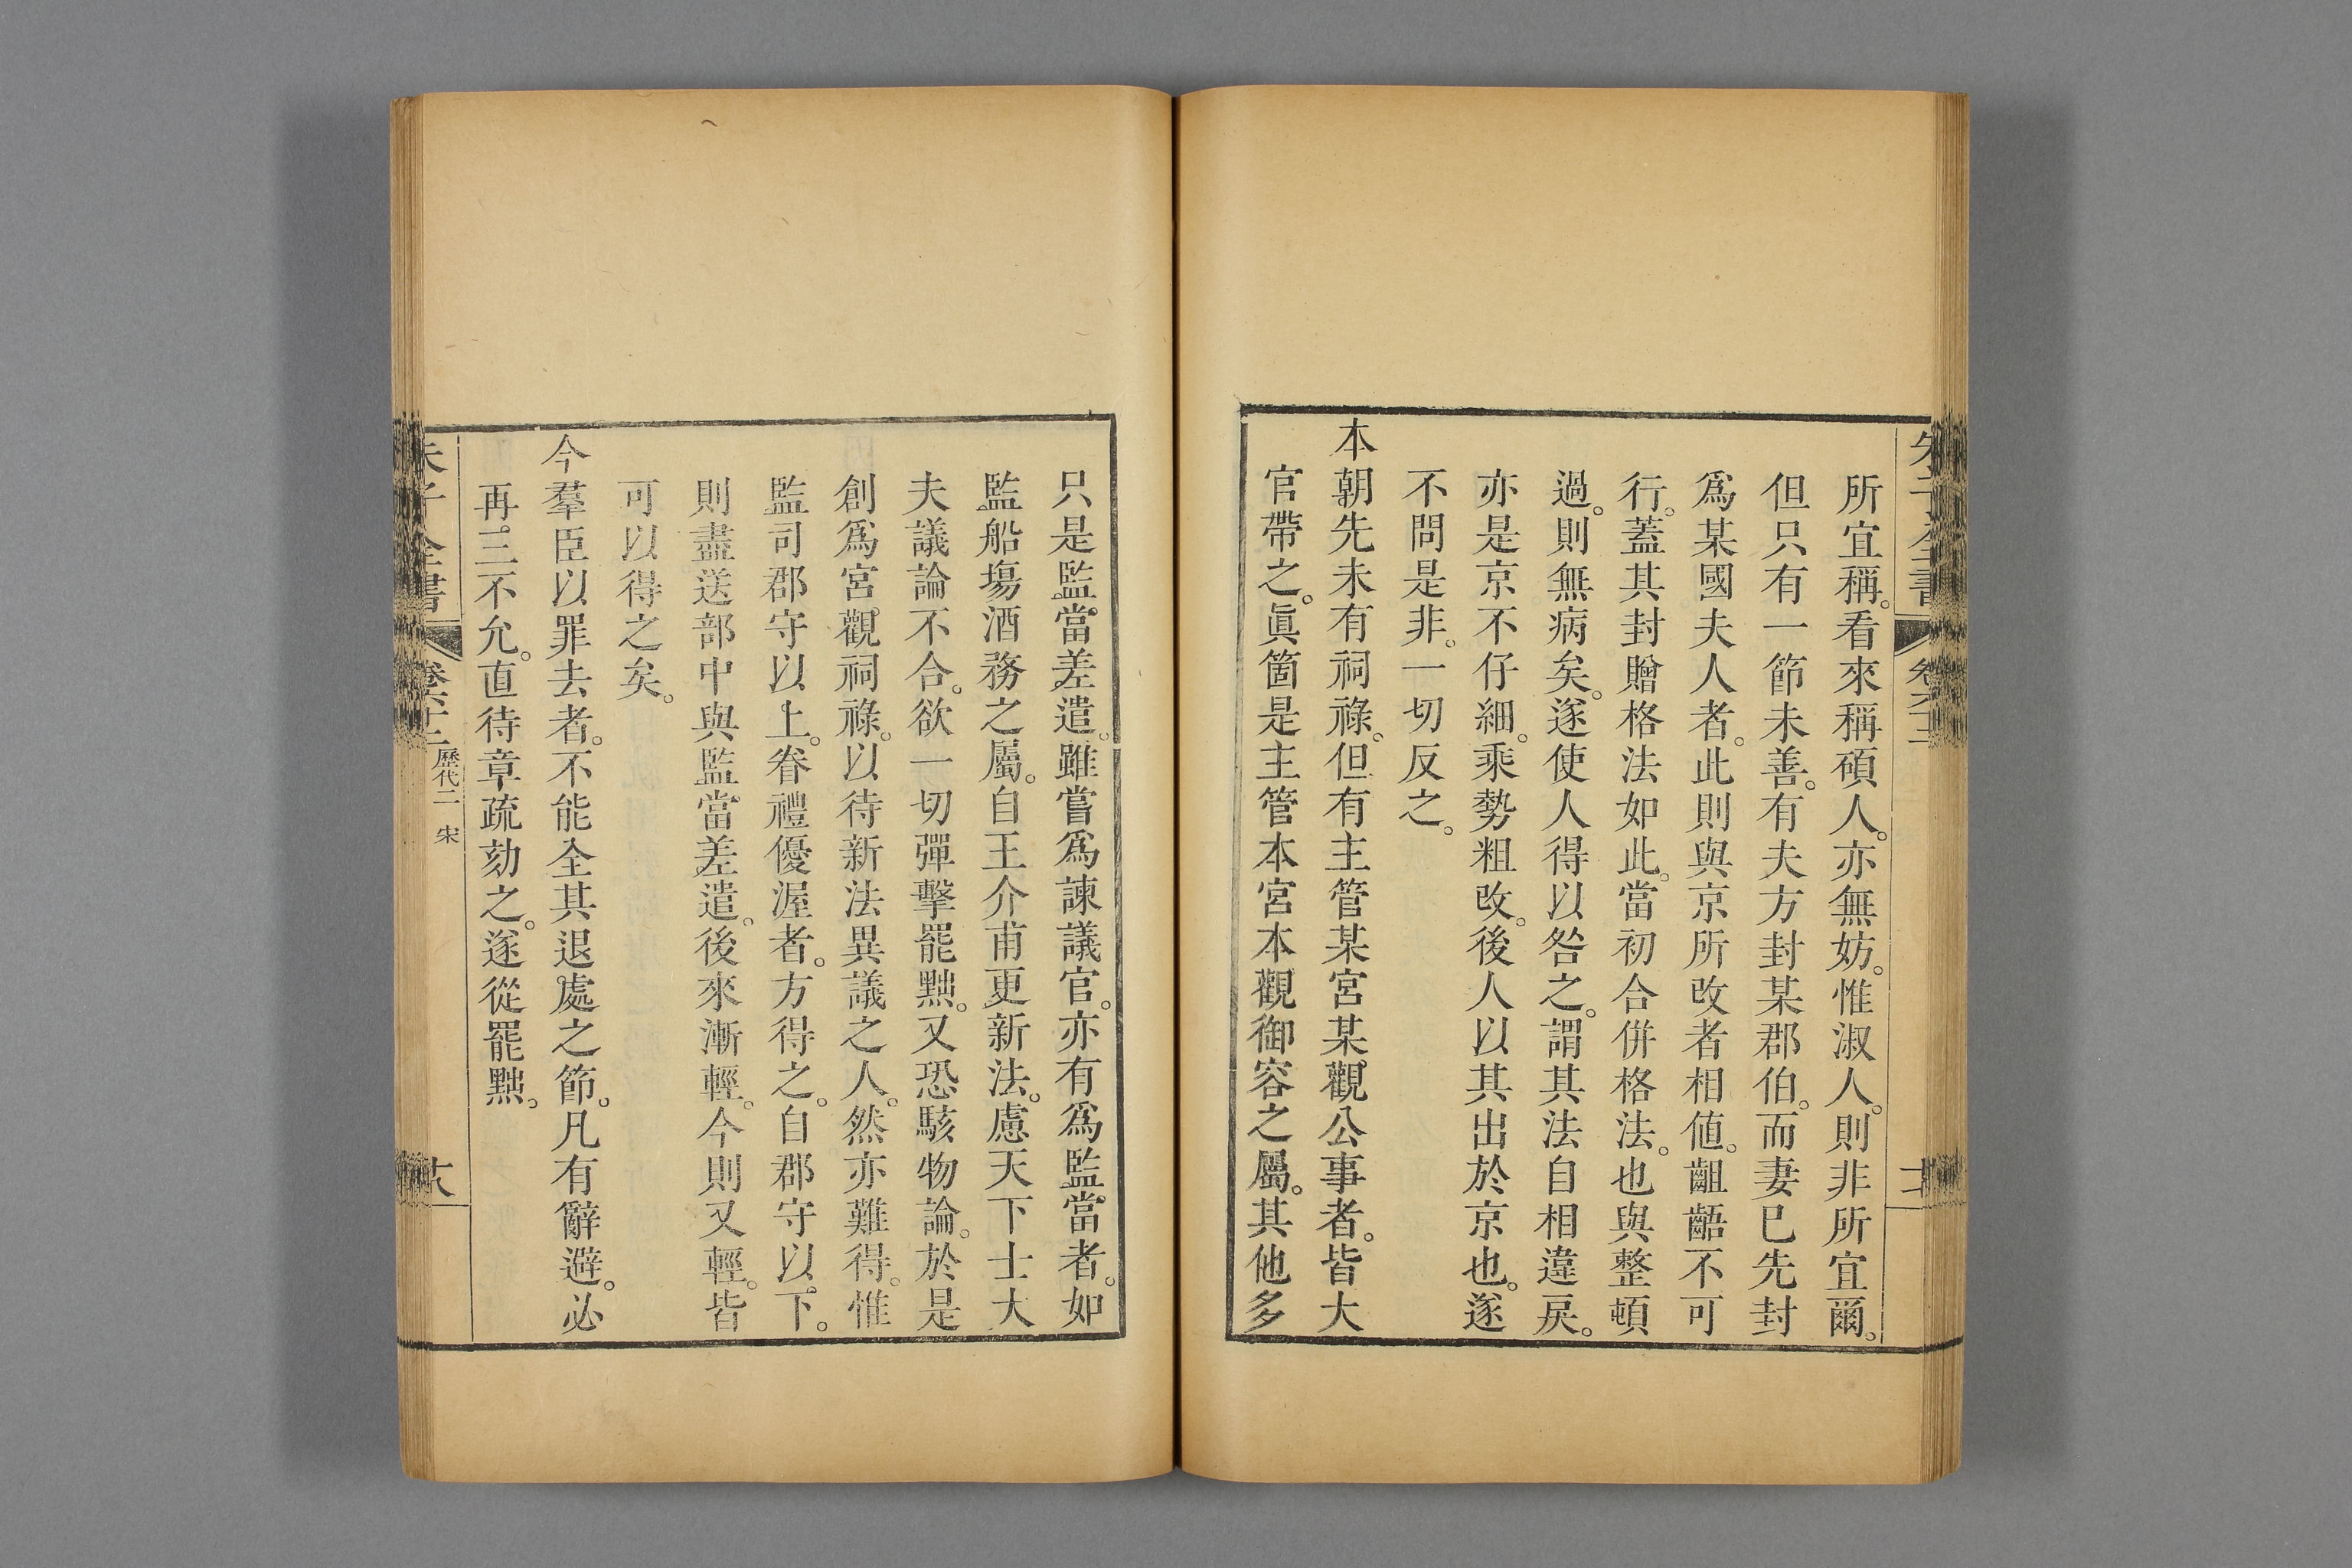 所宜稱。看來稱碩人。亦無妨。惟淑人。則非所宜爾。
但只有一節未善。有夫方封某郡伯。而妻已先封
爲某國夫人者。此則與京所改者相値。齟齬不可
行。蓋其封贈格法如此。當初合併格法。也與整頓
過。則無病矣。遂使人得以咎之。謂其法自相違戾。
亦是京不仔細。乘勢粗改。後人以其出於京也。遂
不問是非。一切反之。
本朝先未有祠祿。但有主管某宮某觀公事者。皆大
官帶之。眞箇是主管本宮本觀御容之屬。其他多
只是監當差遣。雖嘗爲諫議官。亦有爲監當者。如
監船塲酒務之屬。自王介甫更新法。慮天下士大
夫議論不合。欲一切彈擊罷黜。又恐駭物論。於是
創爲宮觀祠祿。以待新法異議之人。然亦難得。惟
監司郡守以上。眷禮優渥者。方得之。自郡守以下。
則盡送部中與監當差遣。後來漸輕。今則又輕。皆
可以得之矣。
今羣臣以罪去者。不能全其退處之節。凡有辭避。必
再三不允。直待章疏劾之。遂從罷黜。
朱子全書
歷代二 宋